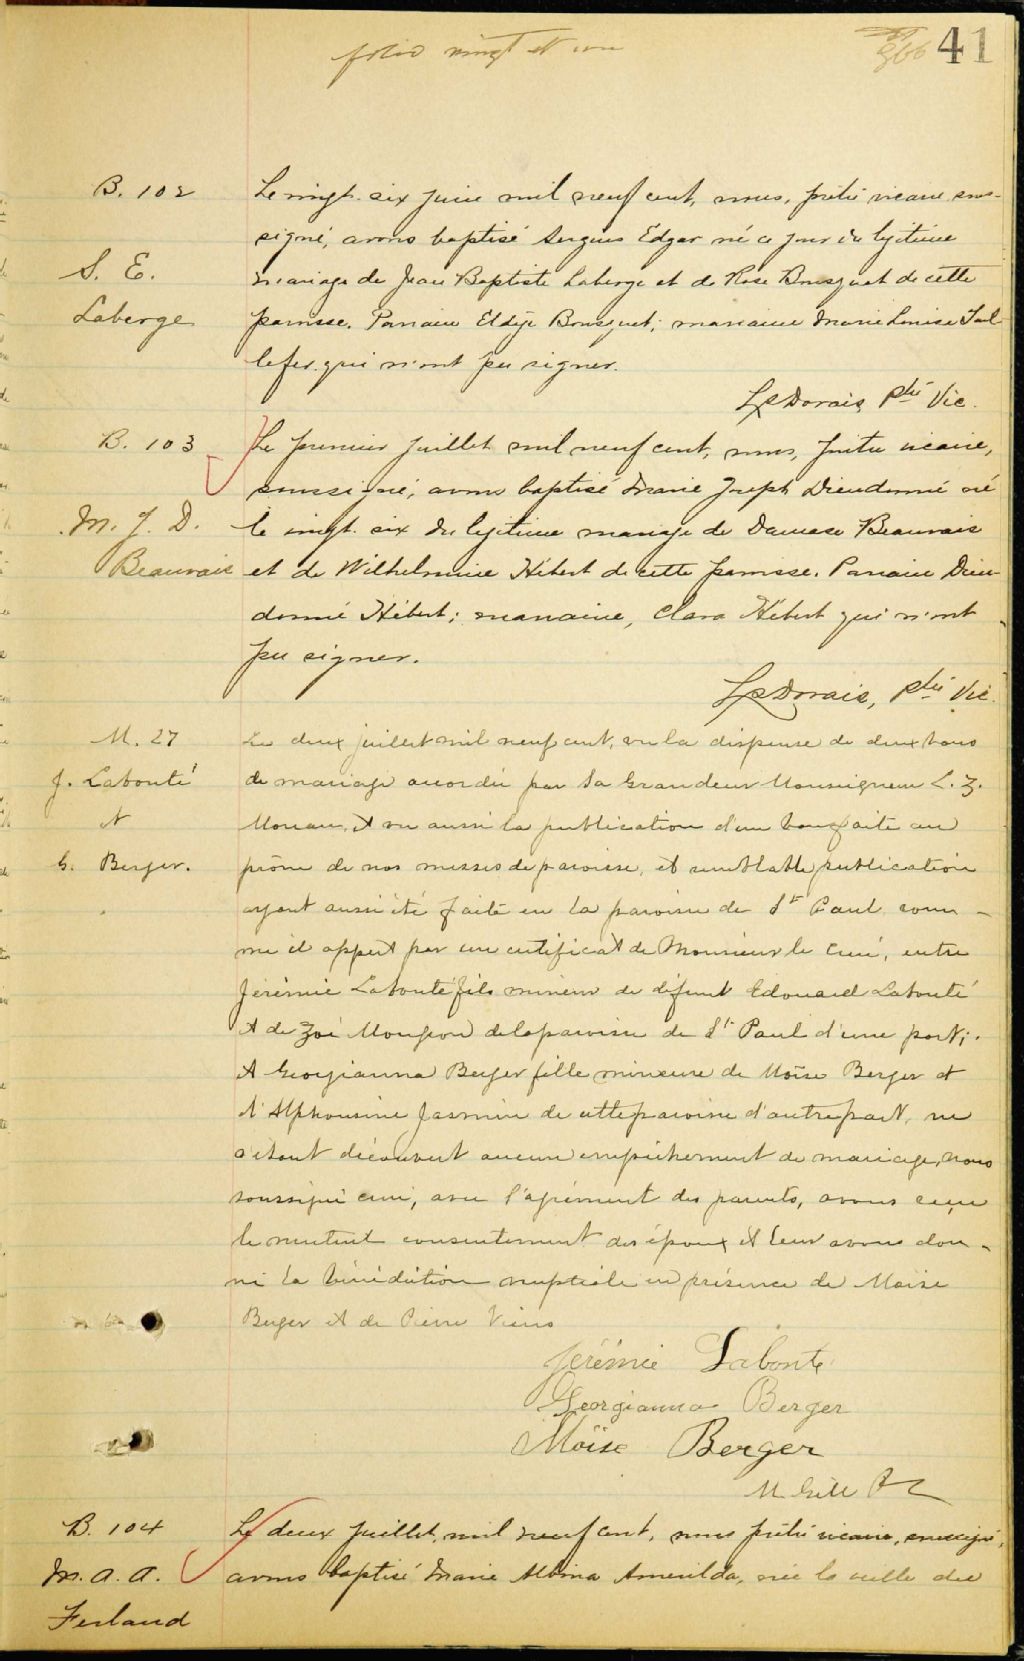 folio vingt et un
41
B. 102
S. E.
Laberge
Le vingt six juin mil neuf cent, nous, prêtre vicaire sous-
signé, avons baptisé Sergius Edgar né ce jour du légitime
mariage de Jean Baptiste Laberge et de Rose Bousquet de cette
paroisse. Parrain Eldège Bousquet; marraine Marie Louise Tail-
lefer qui n'ont pu signer.
LsDorais, Ptre Vic.
B. 103
M. J. D.
Beauvais
Le premier juillet mil neuf cent, nous, prêtre vicaire,
soussigné, avons baptisé Marie Joseph Dieudonné né
le vingt six du légitime mariage de Damase Beauvais
et de Wilhelmine Hébert de cette paroisse. Parrain Dieu-
donné Hébert; marraine, Clara Hébert qui n'ont
pu signer.
LsDorais, Ptre Vic.
M. 27
J. Labonté
et
G. Berger.
Le deux juillet mil neuf cent, vu la dispense de deux bans
de mariage accordée par Sa Grandeur Monseigneur L. Z.
Moreau, et vu aussi la publication d'un ban faite au
prône de nos messes de paroisse, et semblable publication
ayant aussi été faite en la paroisse de St Paul com-
me il appert par un certificat de Monsieur le Curé, entre
Jérémie Labonté fils mineur de défunt Edouard Labonté
et de Zoé Mongeon de la paroisse de St Paul d'une part;
et Georgianna Berger fille mineure de Moïse Berger et
d'Alphonsine Jasmin de cette paroisse d'autre part, ne
s'étant découvert aucun empêchement de mariage, nous
soussigné curé, avec l'agrément des parents, avons reçu
le mutuel consentement des époux et leur avons don-
né la bénédiction nuptiale en présence de Moïse
Berger et de Pierre Viens
Jérémie Labonté
Georgianna Berger
Moïse Berger
B. 104
M. A. A.
Ferland
Le deux juillet, mil neuf cent, nous prêtre vicaire, soussigné,
avons baptisé Marie Albina Amerilda, née la veille du